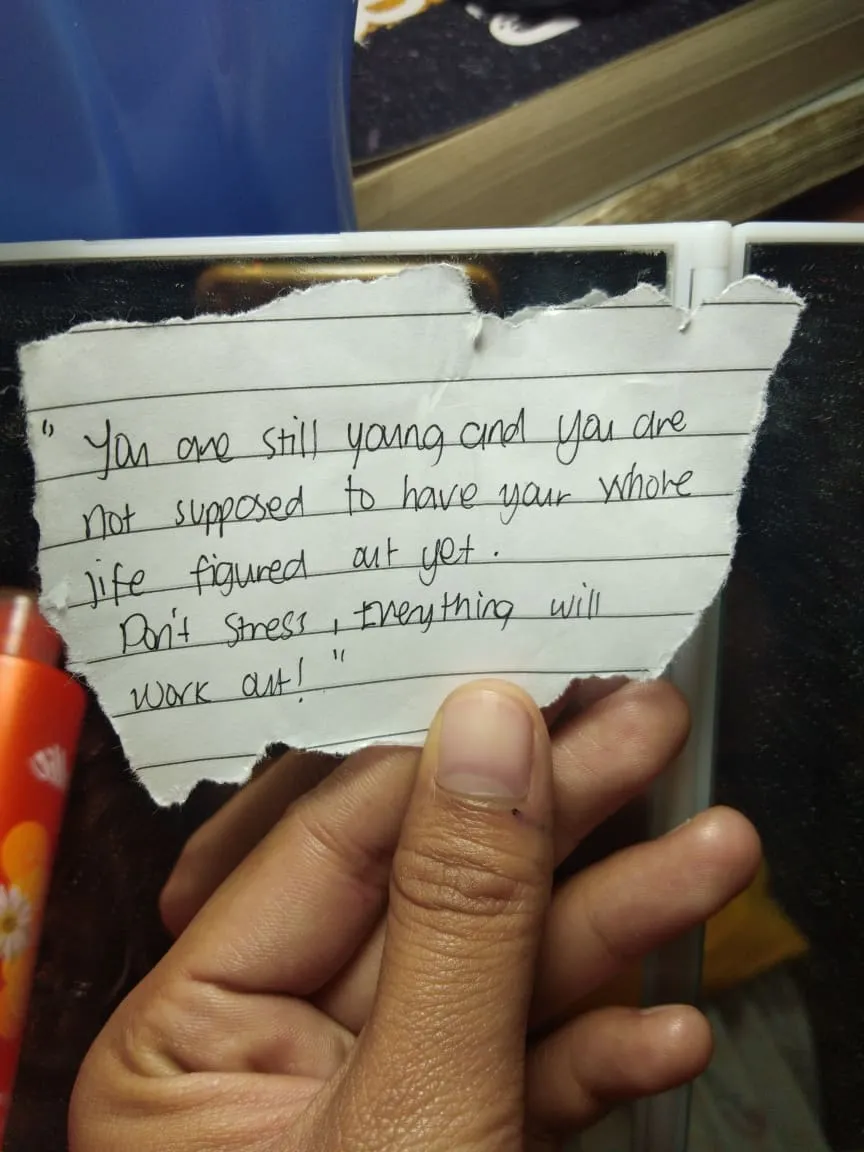 " You are still young and you are
not supposed to have your whole
life figured out yet.
Don't stress, Everything will
work out! "